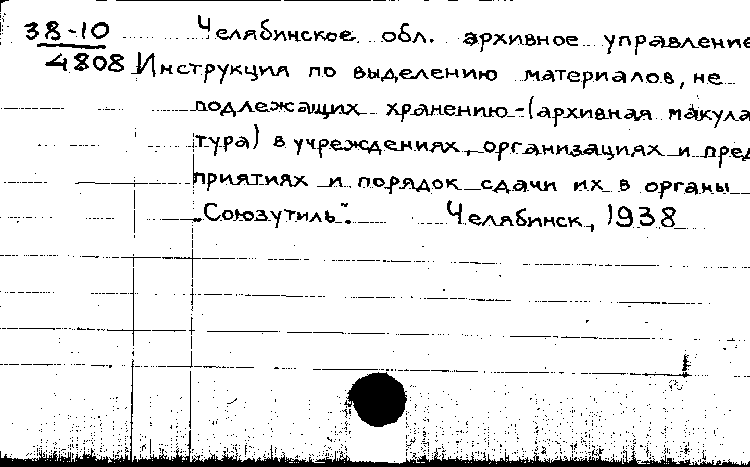 38-10 Челябинское обл. архивное управление
4808 Инструкция по выделению материалов, не
подлежащих хранению-(архивная макула
тура) в учреждениях, организациях и пред
приятиях и порядок сдачи их в органы
„Союзутиль". Челябинск, 1938